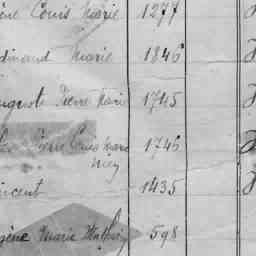 ène Louis Marie 1277
dinand Marie 1846
Pierre Marie 1745
Pierre Louis Marie 1746
incent 1435
gène Marie 598